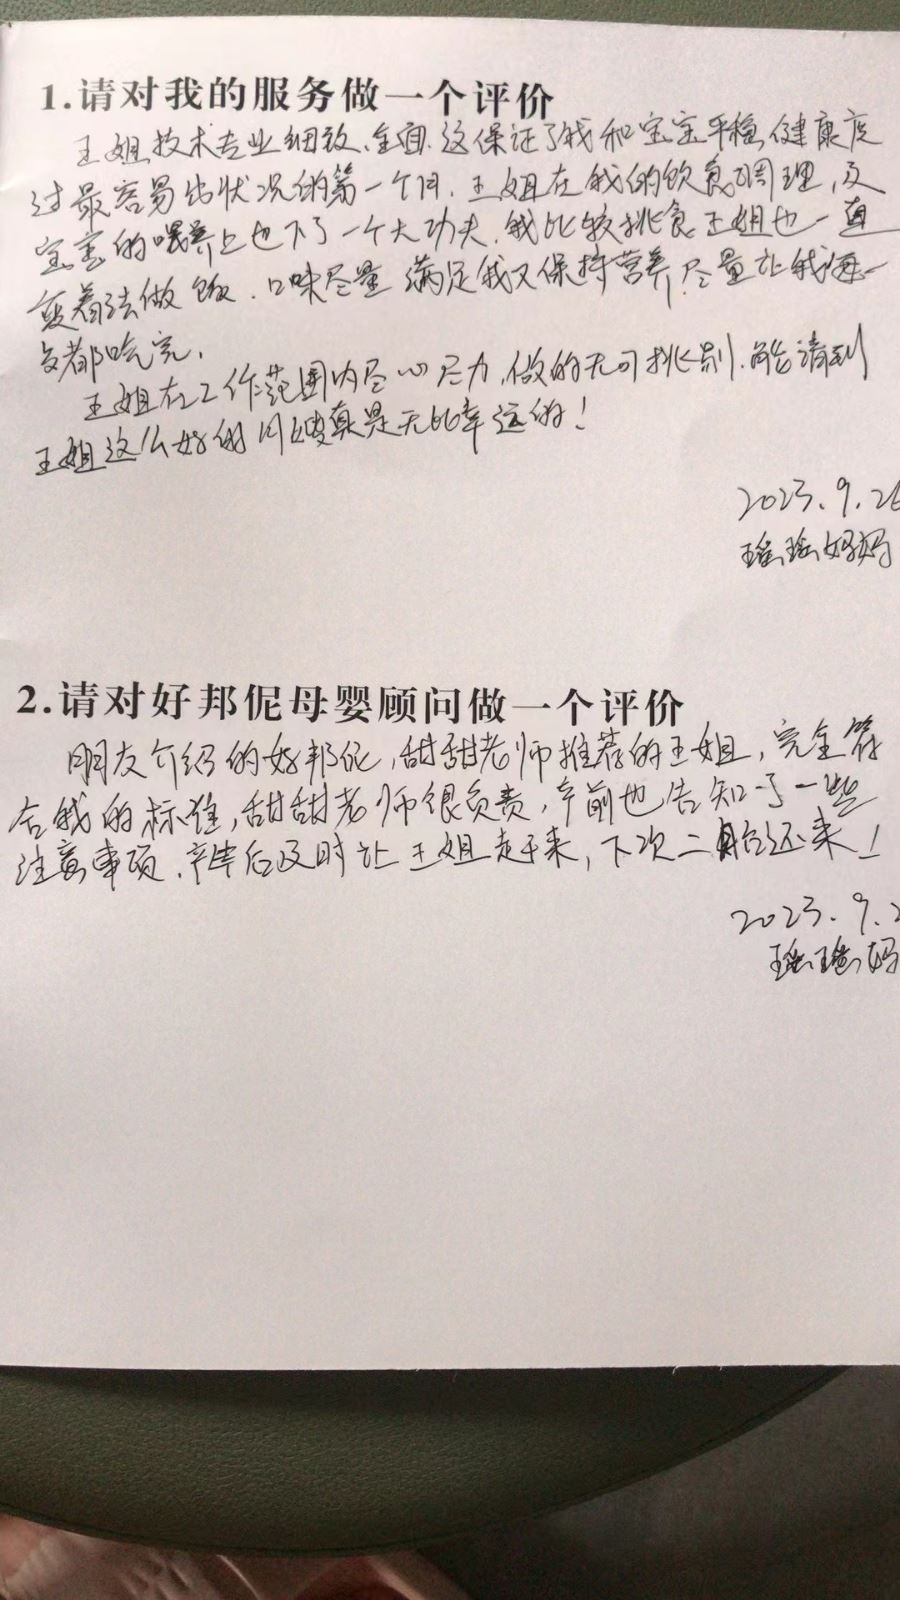 1.请对我的服务做一个评价
王姐技术专业细致、全面.这保证了我和宝宝平稳、健康度
过最容易出状况的第一个月.王姐在我的饮食调理,及
宝宝的喂养上也下了一个大功夫.我比较挑食王姐也一直
变着法做饭.口味尽量满足我又保持营养.尽量让我每一
都吃完.
王姐在工作范围内尽心尽力,做的无可挑剔.能请到
王姐这么好的月嫂真是无比幸运的!
2023.9.26
瑶瑶妈妈
2.请对好邦伲母婴顾问做一个评价
朋友介绍的好邦伲,甜甜老师推荐的王姐,完全符
合我的标准,甜甜老师很负责,产前也告知了一些
注意事项.产后及时让王姐赶来,下次二胎还来!
2023.9.2
瑶瑶妈